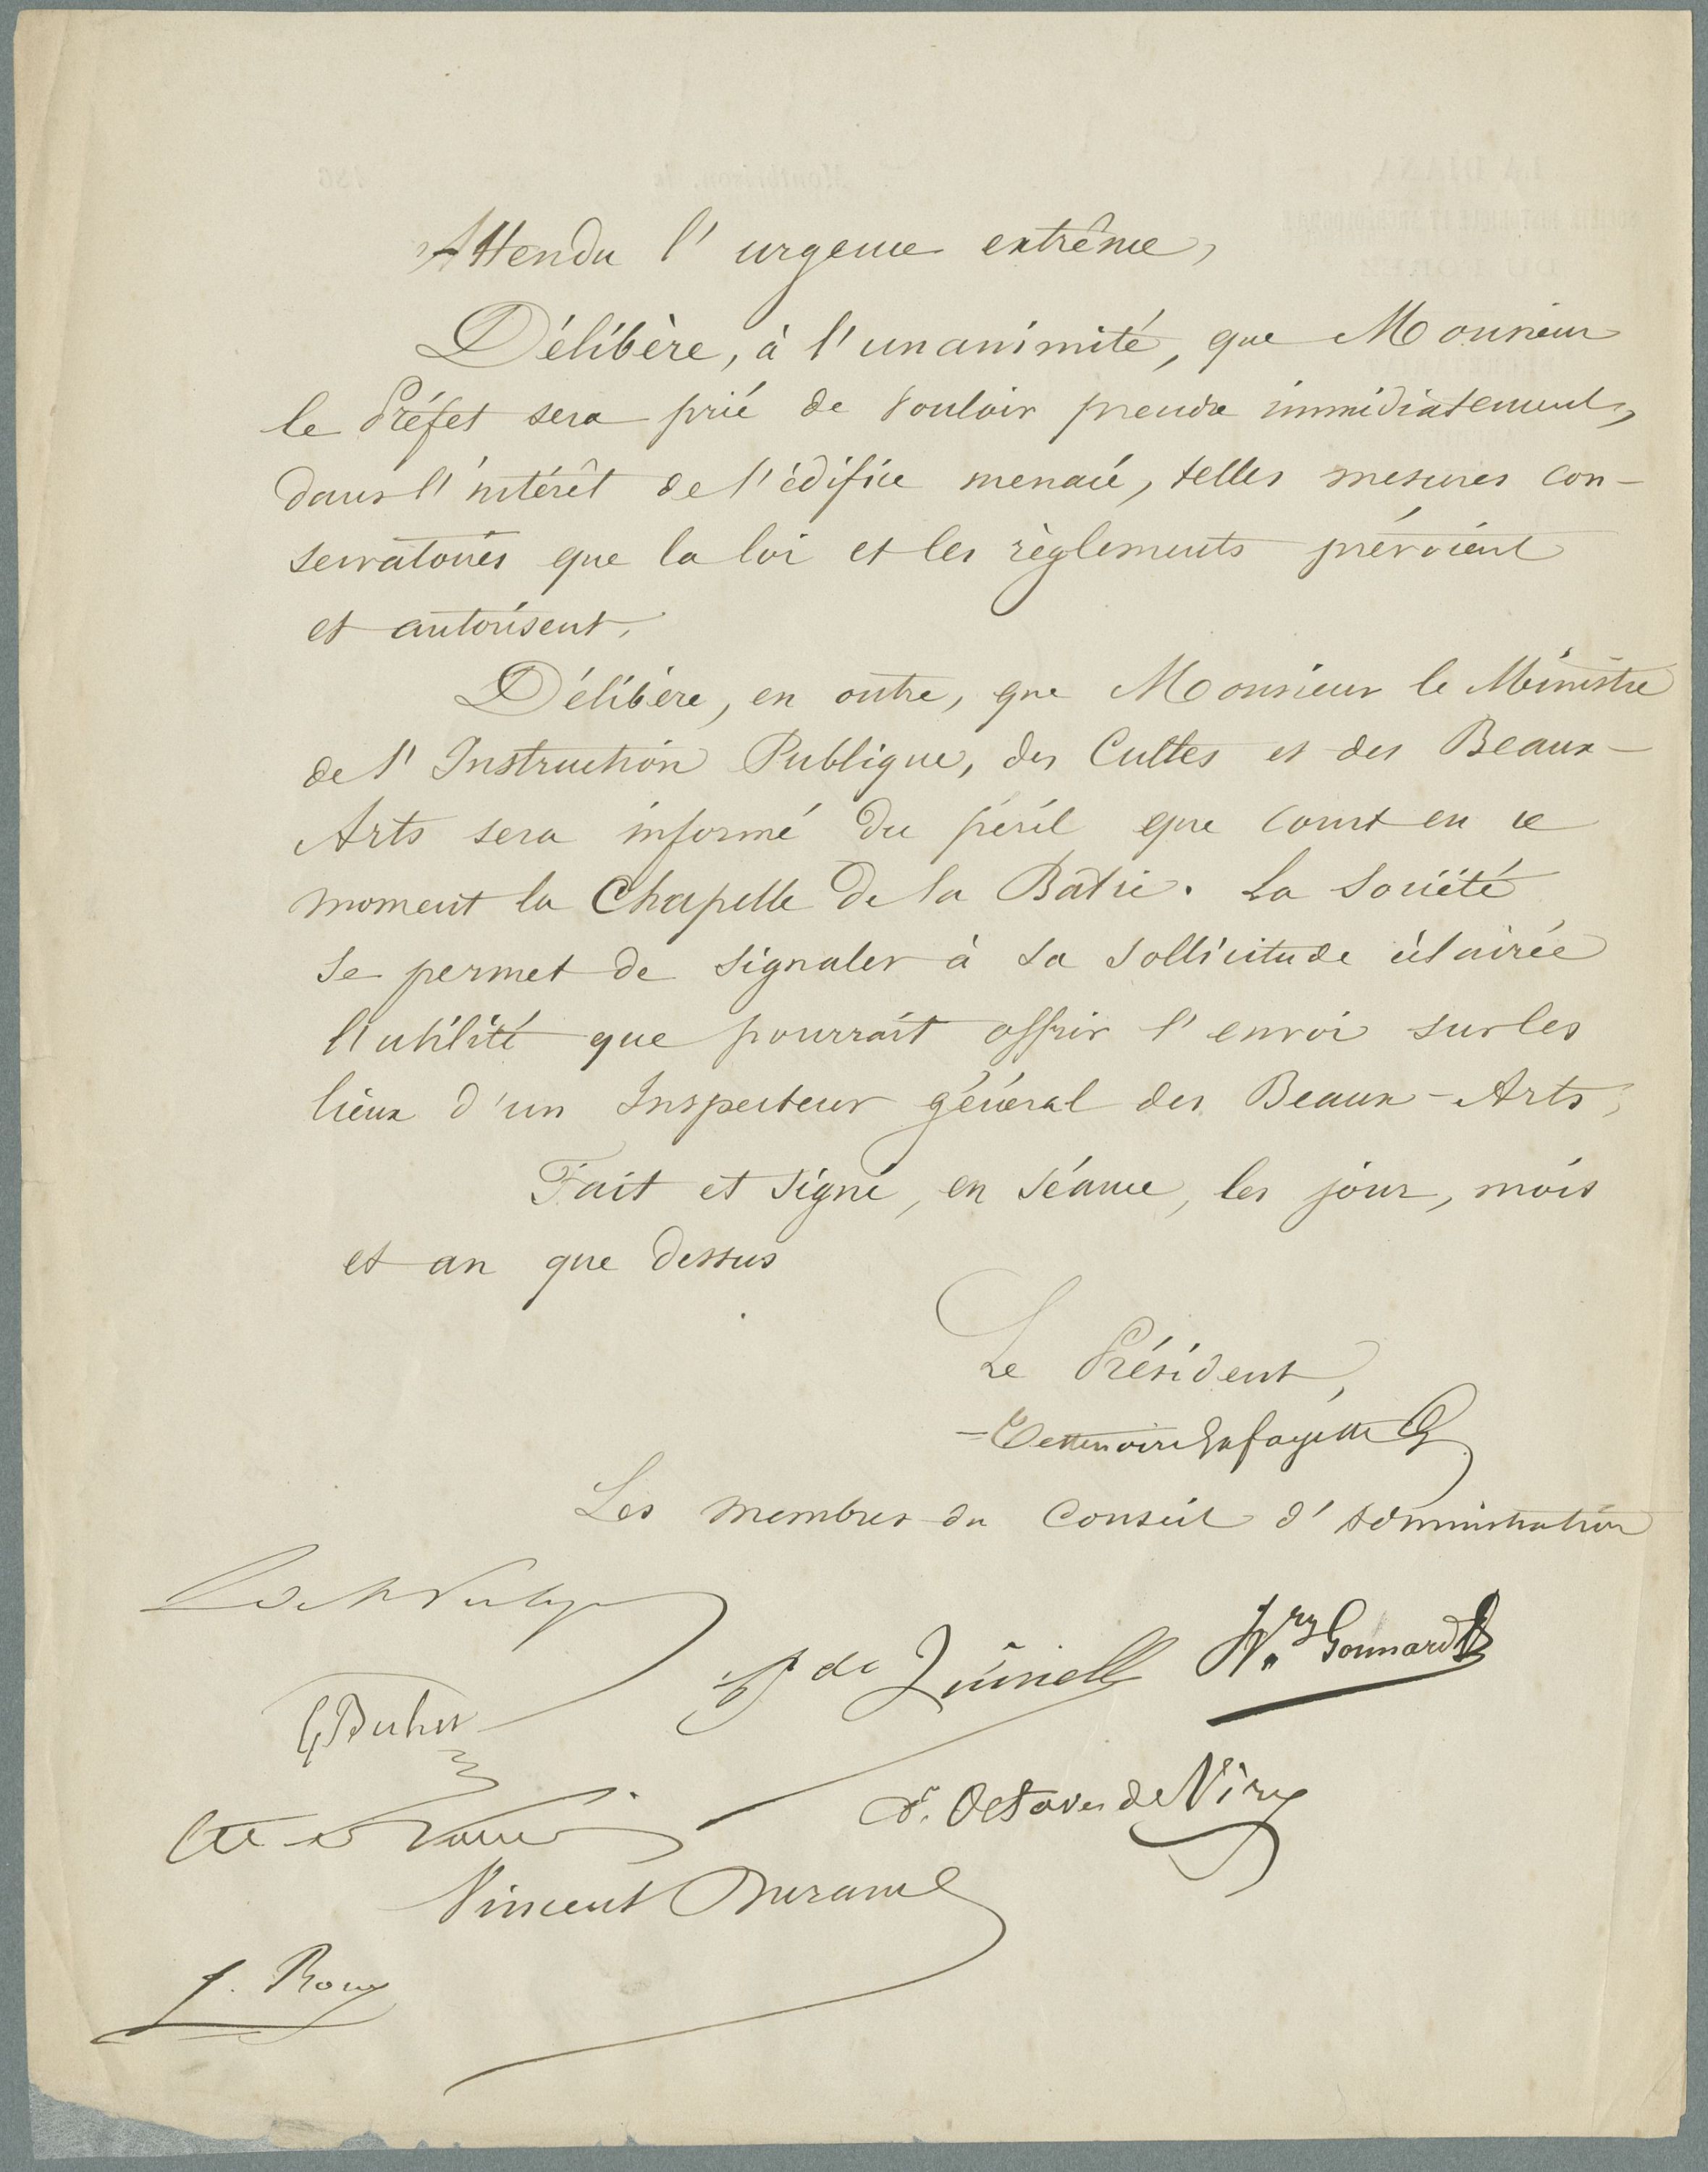 Attendu l'urgence extrême,
Délibère, à l'unanimité, que Monsieur
le Préfet sera prié de vouloir prendre immédiatement,
dans l'intérêt de l'édifice menacé, telles mesures con-
servatoires que la loi et les règlements prévoient
et autorisent.
Délibère, en outre, que Monsieur le Ministre
de l'Instruction Publique, des Cultes et des Beaux-
Arts sera informé du péril que court en ce
moment la Chapelle de la Bâtie. La Société
se permet de signaler à sa sollicitude éclairée
l'utilité que pourrait offrir l'envoi sur les
lieux d'un Inspecteur général des Beaux-Arts.
Fait et signé, en séance, les jour, mois
et an que dessus
Le Président,
Testenoire Lafayette
Les membres du Conseil d'administration
Wry Gonnard
Octave de Viry
Vincent Durand
J. Rony